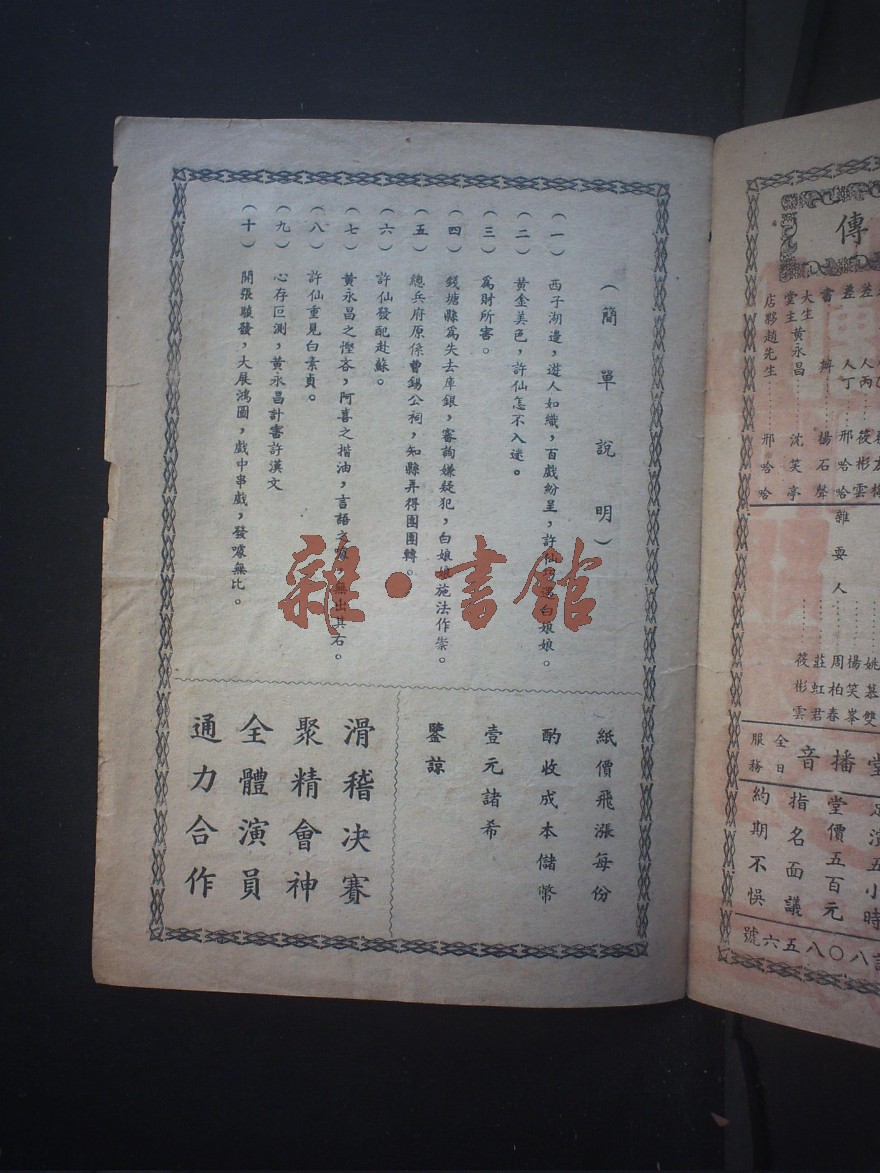 （簡單說明）
（一）　西子湖邊，遊人如織，百戲紛呈，許仙　遇白娘娘。
（二）　黃金美色，許仙怎不入迷。
（三）　爲財所害。
（四）　錢塘縣爲失去庫銀，審詢嫌疑犯，白娘娘施法作祟。
（五）　總兵府原係曹錫公祠，知縣弄得團團轉。
（六）　許仙發配赴蘇。
（七）　黃永昌之慳吝，阿喜之揩油，言語之噱，無出其右。
（八）　許仙重見白素貞。
（九）　心存叵測，黃永昌計害許漢文
（十）　開張駿發，大展鴻圖，戲中串戲，發噱無比。
紙價飛漲每份
酌收成本儲幣
壹元諸希
鑒諒
滑稽決賽
聚精會神
全體演員
通力合作
雜•書館
傳
書　辦　楊石聲
大生堂主黃永昌……沈笑亭
店夥趙先生……邢哈哈
差人丁　邢哈哈
人丙　筱彬雲
雜耍人
姚慕雙
楊笑峯
周柏春
莊虹君
筱彬雲
堂播音
全日服務
五小時
堂價五百元
指名面議
約期不悞
八〇八五六號